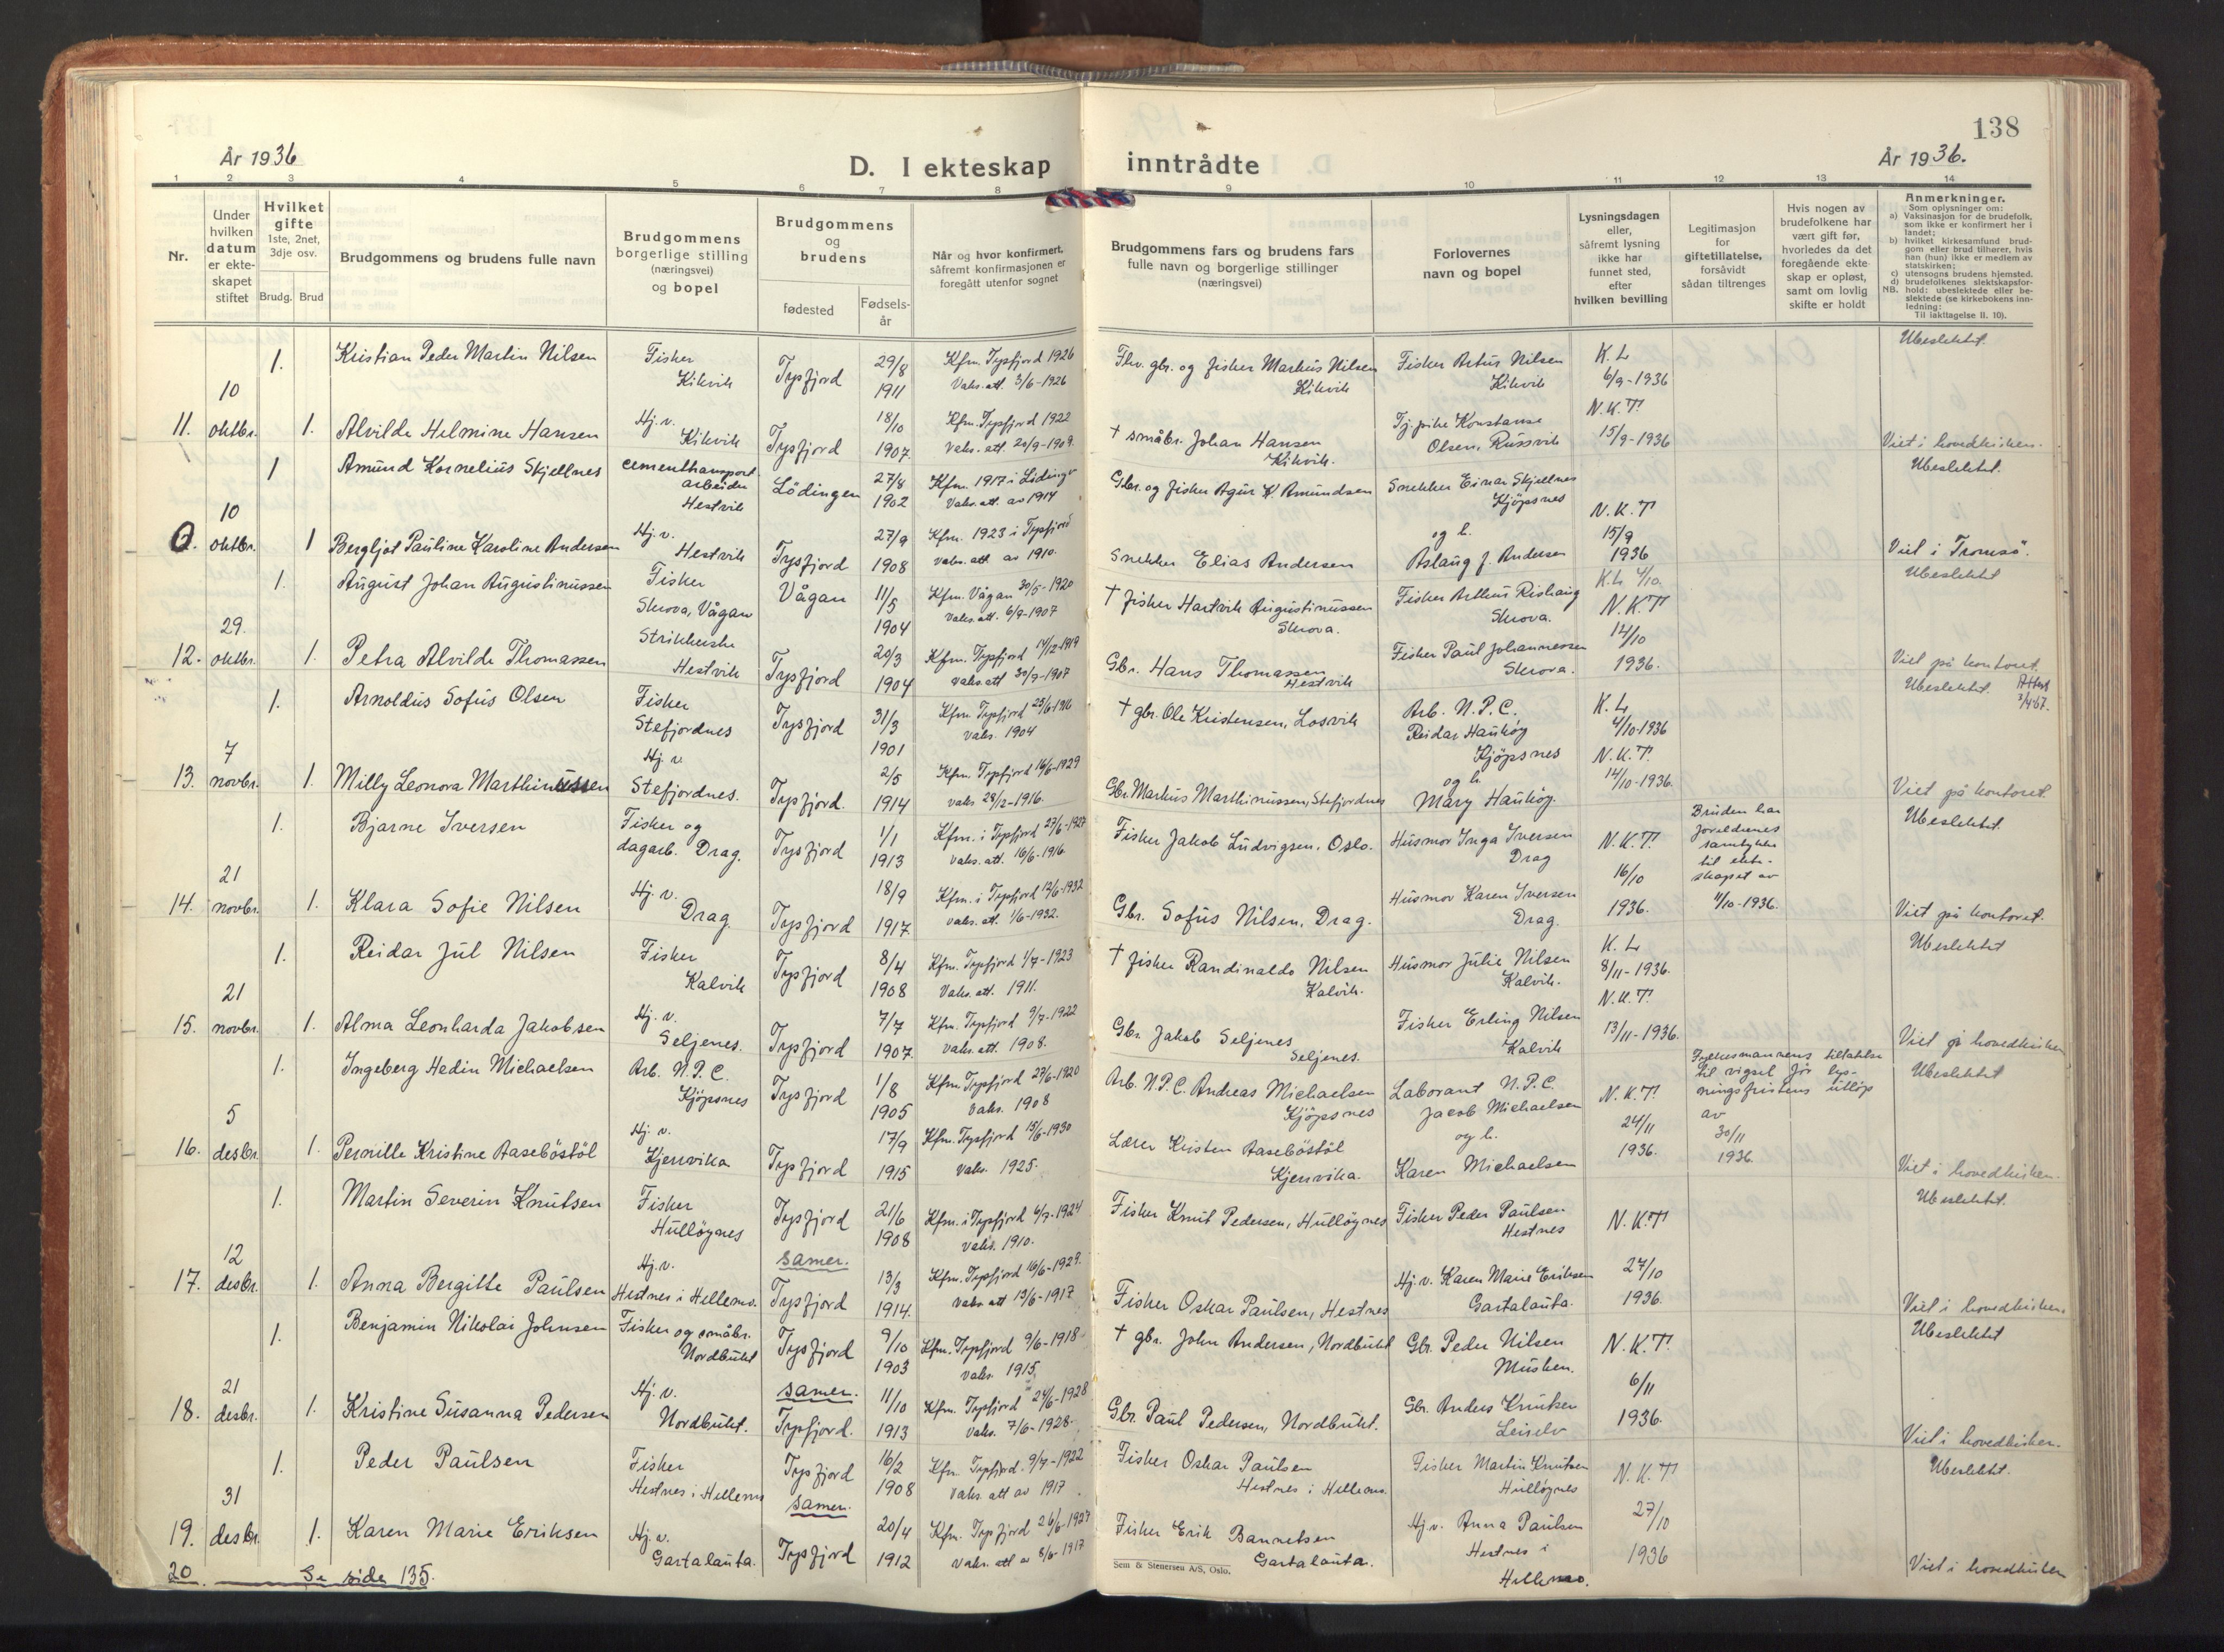 138
År 1936
D. I ekteskap inntrådte
År 1936.
1 2 3 4 5 6 7 8 9 10 11 12 13 14
Nr.
Under hvilken datum er ekteskapet stiftet
Hvilket gifte
1ste, 2net, 3dje osv.
Brudg. Brud
Brudgommens og brudens fulle navn
Brudgommens borgerlige stilling (næringsvei) og bopel
Brudgommens og brudens
fødested
Fødselsår
Når og hvor konfirmert, såfremt konfirmasjonen er foregått utenfor sognet
Brudgommens fars og brudens fars fulle navn og borgerlige stillinger (næringsvei)
Forlovernes navn og bopel
Lysningsdagen eller, såfremt lysning ikke har funnet sted, efter hvilken bevilling
Legitimasjon for giftetillatelse, forsåvidt sådan tiltrenges
Hvis nogen av brudefolkene har vært gift før, hvorledes da det foregående ekteskap er opløst, samt om lovlig skifte er holdt
Anmerkninger.
Som oplysninger om:
a) Vaksinasjon for de brudefolk, som ikke er konfirmert her i landet;
b) hvilket kirkesamfund brudgom eller brud tilhører, hvis han (hun) ikke er medlem av statskirken;
c) utensogns brudens hjemsted.
d) brudefolkenes slektskapsforhold: ubeslektede eller beslektede (se kirkebokens innledning:
NB.
Til iakttagelse II. 10).
1. Kristian Peder Martin Nilsen Fisker Kikvik Tysfjord 29/8 1911 Kfm. Tysfjord 1926 Vaks. att. 3/6-1926 gbr. og fisker Markus Nilsen Kikvik Fisker Artur Nilsen Kikvik K. L 6/9-1936 Ubeslektet.
11. 10 oktbr. 1. Alvilde Helmine Hansen Hj. v. Kikvik Tysfjord 18/10 1907. Kfm. Tysfjord 1922 Vaks. att. 20/9-1909. † småbr. Johan Hansen Kikvik. Tj. pike Konstanse Olsen, Russvik N. K. T. 15/9-1936 Viet i hovedkirken.
1 Amund Kornelius Skjellnes cementtransport arbeider Hestvik Lödingen 27/8 1902 Kfm. 1917 i Lödingen Vaks. att. av 1914 Gbr. og fisker Agur K. Amundsen Snekker Einar Skjellnes Kjöpsnes Ubeslektet.
0. 10 oktbr. 1 Bergljot Pauline Karoline Andersen Hj. v. Hestvik Tysfjord 27/9 1908 Kfm. 1923 i Tysfjord Vaks. att. av 1910. Snekker Elias Andersen og h. Aslaug J. Andersen N. K. T 15/9 1936 Viet i Tromsö.
1. August Johan Augustinussen Fisker Skrova, Vågan Vågan 11/5 1904 Kfm. Vågan 30/5-1920 Vaks. att. 6/9-1907 † fisker Hartvik Augustinussen Skrova. Fisker Arthur Rishaug Skrova. K. L 4/10 Ubeslektet
12. 29. oktbr. 1. Petra Alvilde Thomassen Strikkerske Hestvik Tysfjord 20/3 1904 Kfm. Tysfjord 14/12-1919 Vaks. att 30/9-1907 Gbr. Hans Thomassen Hestvik Fisker Paul Johannessen Skrova. N. K. T 14/10 1936. Viet på kontoret.
1. Arnoldus Sofus Olsen Fisker Stefjordnes Tysfjord 31/3 1901 Kfm. Tysfjord 25/6-1916 Vaks. 1904 † gbr. Ole Kristensen, Losvik Arb. N. P. C. Reidar Haukøy Kjöpsnes K. L 4/10-1936 Ubeslektet. Attest 3/4 67.
13. 7 novbr. 1. Milly Leonora Marthinussen Hj. v Stefjordnes. Tysfjord. 2/5 1914 Kfm. Tysfjord 16/6-1929 vaks 28/2-1916. Gbr. Markus Marthinussen, Stefjordnes og h. Mary Haukøy. N. K. T. 14/10-1936. Viet på kontoret.
1. Bjarne Iversen Fisker og dagarb. Drag. Tysfjord 1/1 1913 Kfm. i Tysfjord 27/6-1927 Vaks. att. 16/6-1916. Fisker Jakob Ludvigsen, Oslo. Husmor Inga Iversen Drag N. K. T. Bruden har foreldrenes samtykke til ekteskapet av 11/10-1936. Ubeslektet.
14. 21 novbr. 1. Klara Sofie Nilsen Hj. v. Drag. Tysfjord 18/9 1917. Kfm. i Tysfjord 12/6-1932 Vaks. att. 1/6-1932. Gbr. Sofus Nilsen, Drag. Husmor Karen Iversen Drag. 16/10 1936. Viet på kontoret.
1. Reidar Jul Nilsen Fisker Kalvik Tysfjord 8/4 1908 Kfm. Tysfjord 1/7-1923 Vaks. att. 1911. † fisker Randinaldo Nilsen Kalvik. Husmor Julie Nilsen Kalvik. K. L 8/11-1936. Ubeslektet
15. 21 novbr. 1. Alma Leonharda Jakobsen Hj. v. Seljenes. Tysfjord 7/7 1907. Kfm. Tysfjord 9/7-1922 Vaks. att. 1908. Gbr. Jakob Seljenes Seljenes. Fisker Erling Nilsen Kalvik N. K. T. 13/11-1936. Viet på hovedkirken
1. Ingeberg Hedin Michaelsen Arb. N. P. C. Kjöpsnes Tysfjord 1/8 1905 Kfm. Tysfjord 27/6-1920 Vaks. 1908 Arb. N. P. C. Andreas Michaelsen Kjöpsnes Laborant N. P. C. Jacob Michaelsen N. K. T. Fylkesmannens tillatelse til vigsel før lysningsfristens utlöp av 30/11 1936. Ubeslektet
16. 5 desbr. 1. Pernille Kristine Aasebøstöl Hj. v. Kjerrvika Tysfjord 17/9 1915 Kfm. Tysfjord 15/6-1930 Vaks. 1925. Lærer Kristen Aasebøstöl Kjerrvika. og h. Karen Michaelsen 24/11 1936. Viet i hovedkirken.
1. Martin Severin Knutsen Fisker Hulløynes Tysfjord 21/6 1908 Kfm. i Tysfjord 6/7-1924 Vaks. 1910. Fisker Knut Pedersen, Hulløynes Fisker Peder Paulsen Hestnes N. K. T Ubeslektet.
17. 12 desbr. 1. Anna Bergitte Paulsen Hj. v. Hestnes i Hellemo. samer. Tysfjord 13/3 1914. Kfm. Tysfjord 16/6-1929. Vaks att 13/6-1917 Fisker Oskar Paulsen, Hestnes Hj. v. Karen Marie Eriksen Gastalauta. 27/10 1936. Viet i hovedkirken.
1. Benjamin Nikolai Johnsen Fisker og småbr. Nordbukt Tysfjord 9/10 1903 Kfm. Tysfjord 9/6-1918 Vaks. 1915. † gbr. John Andersen, Nordbukt Gbr. Peder Nilsen Musken. N. K. T. Ubeslektet
18. 21 desbr. 1. Kristine Susanna Pedersen Hj. v. Nordbukt. samer. Tysfjord. 11/10 1913 Kfm. Tysfjord 24/6-1928 Vaks. 7/6-1928. Gbr. Paul Pedersen, Nordbukt. Gbr. Anders Knutsen Leiselv 6/11 1936. Viet i hovedkirken.
1. Peder Paulsen Fisker Hestnes i Hellemo Tysfjord 16/2 1908 Kfm. Tysfjord. 9/7-1922 Vaks. att av 1917 Fisker Oskar Paulsen Hestnes i Hellemo. Fisker Martin Knutsen Hulløynes N. K. T Ubeslektet.
19. 31 desbr. 1. Karen Marie Eriksen Hj. v. Gastalauta. samer. Tysfjord 20/4 1912 Kfm. Tysfjord 26/6-1927 Vaks. att av 8/6-1917 Fisker Erik Bannetsen Gastalauta. Hj. v. Anna Paulsen Hestnes i Hellemo. 27/10 1936 Viet i hovedkirken
20. Se side 135.
Sem & Stenersen A/S, Oslo.